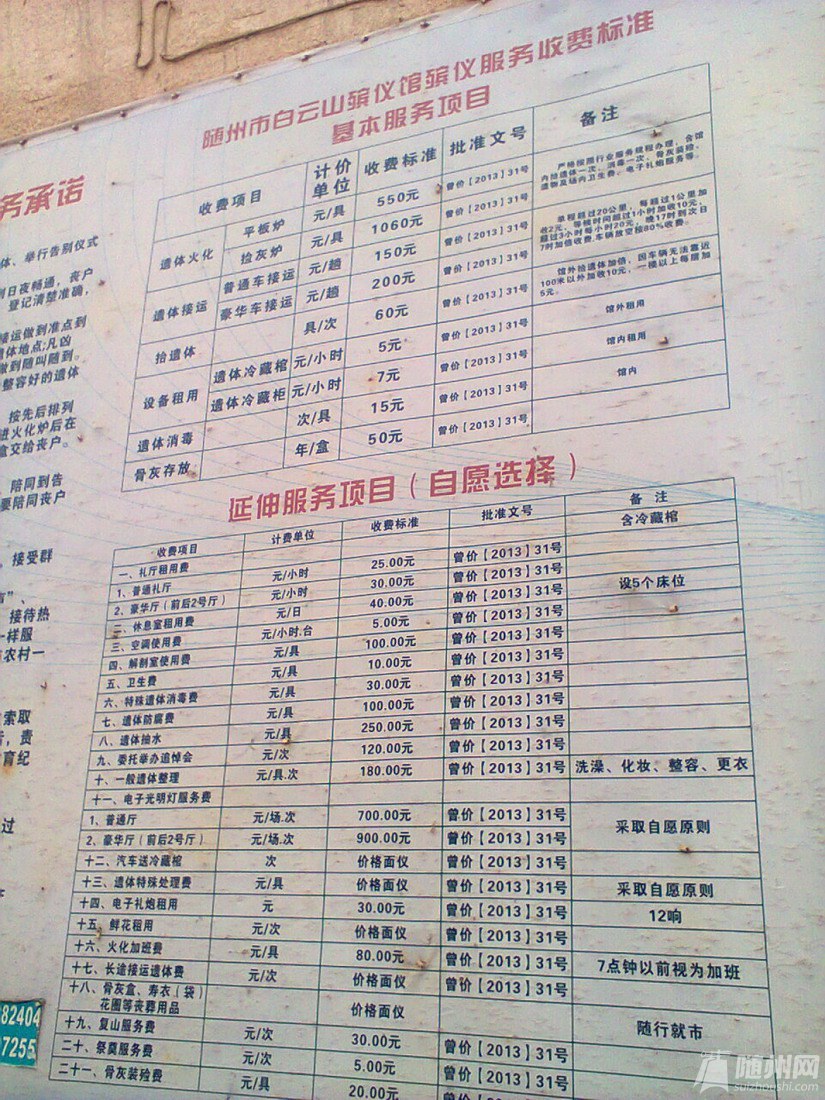 随州市白云山殡仪馆殡仪服务收费标准
基本服务项目
收费项目 计价单位 收费标准 批准文号 备注
遗体火化 平板炉 元/具 550元 曾价【2013】31号 严格按照行业服务规程办理,含馆内抬遗体一次、消毒一次、骨灰装殓、遗物及场内卫生费。电子礼炮服务等。
捡灰炉 元/具 1060元 曾价【2013】31号
遗体接运 普通车接运 元/趟 150元 曾价【2013】31号 单程超过20公里,每超过1公里加收2元,等候时间超过1小时加收10元,超过3小时每小时20元,晚17时到次日7时加倍收费,车辆放空按80%收费。
豪华车接运 元/趟 200元 曾价【2013】31号
抬遗体 具/次 60元 曾价【2013】31号 馆外抬遗体加倍,因车辆无法靠近100米以外加收10元,一楼以上每层加5元。
设备租用 遗体冷藏棺 元/小时 5元 曾价【2013】31号 馆外租用
遗体冷藏柜 元/小时 7元 曾价【2013】31号 馆内租用
遗体消毒 次/具 15元 曾价【2013】31号 馆内
骨灰存放 年/盒 50元 曾价【2013】31号
延伸服务项目(自愿选择)
收费项目 计费单位 收费标准 批准文号 备注
一、礼厅租用费 含冷藏棺
1、普通礼厅 元/小时 25.00元 曾价【2013】31号
2、豪华厅(前后2号厅) 元/小时 30.00元 曾价【2013】31号
二、休息室租用费 元/日 40.00元 曾价【2013】31号 设5个床位
三、空调使用费 元/小时.台 5.00元 曾价【2013】31号
四、解制室使用费 元/具 100.00元 曾价【2013】31号
五、卫生费 元/具 10.00元 曾价【2013】31号
六、特殊遗体消毒费 元/具 30.00元 曾价【2013】31号
七、遗体防腐费 元/具 100.00元 曾价【2013】31号
八、遗体抽水 元/具 250.00元 曾价【2013】31号
九、委托举办追悼会 元/次 120.00元 曾价【2013】31号
十、一般遗体整理 元/具.次 180.00元 曾价【2013】31号 洗澡、化妆、整容、更衣
十一、电子光明灯服务费
1、普通厅 元/场.次 700.00元 曾价【2013】31号 采取自愿原则
2、豪华厅(前后2号厅) 元/场.次 900.00元 曾价【2013】31号
十二、汽车送冷藏棺 次 价格面仪 曾价【2013】31号
十三、遗体特殊处理费 元/具 价格面仪 曾价【2013】31号 采取自愿原则
十四、电子礼炮租用 元 30.00元 曾价【2013】31号 12响
十五、鲜花租用 元/次 价格面仪 曾价【2013】31号
十六、火化加班费 元/具 80.00元 曾价【2013】31号 7点钟以前视为加班
十七、长途接运遗体费 元/次 价格面仪 曾价【2013】31号
十八、骨灰盒、寿衣(袋)花圈等丧葬用品 价格面仪 随行就市
十九、复山服务费 元/次 30.00元 曾价【2013】31号
二十、祭奠服务费 元/次 5.00元 曾价【2013】31号
二十一、骨灰装殓费 元/具 20.00元 曾价【2013】31号
务承诺
体、举行告别仪式
到日夜畅通,丧户
登记清楚准确,
接运做到准点到
遗体地点;凡凶
做到随叫随到。
整容好的遗体
按先后排列
进火化炉后在
盒交给丧户。
陪同到告
要陪同丧户
接受群
接待热
一样服
农村一
索取
责
育纪
过
82404
97255
随州网
suizhoushi.com